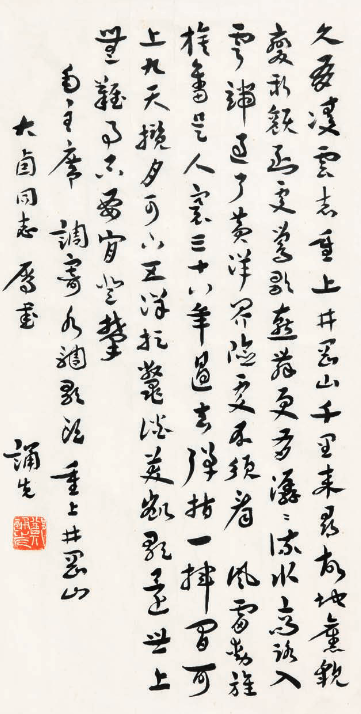 久有凌云志重上井冈山千里来寻故地旧貌
变新颜到处莺歌燕舞更有潺〻流水高路入
云端过了黄洋界险处不须看风雷动旌
旗奋是人寰三十八年过去弹指一挥间可
上九天揽月可下五洋捉鳖谈笑凯歌还世上
无难事只要肯登攀
毛主席 调寄水调歌头 重上井冈山
大卤同志属书
诵先